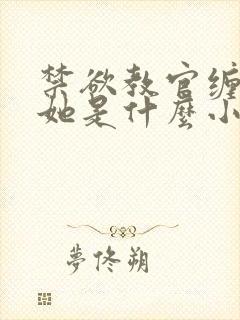 禁欲教官缠
她是什麼小
夢佟朔